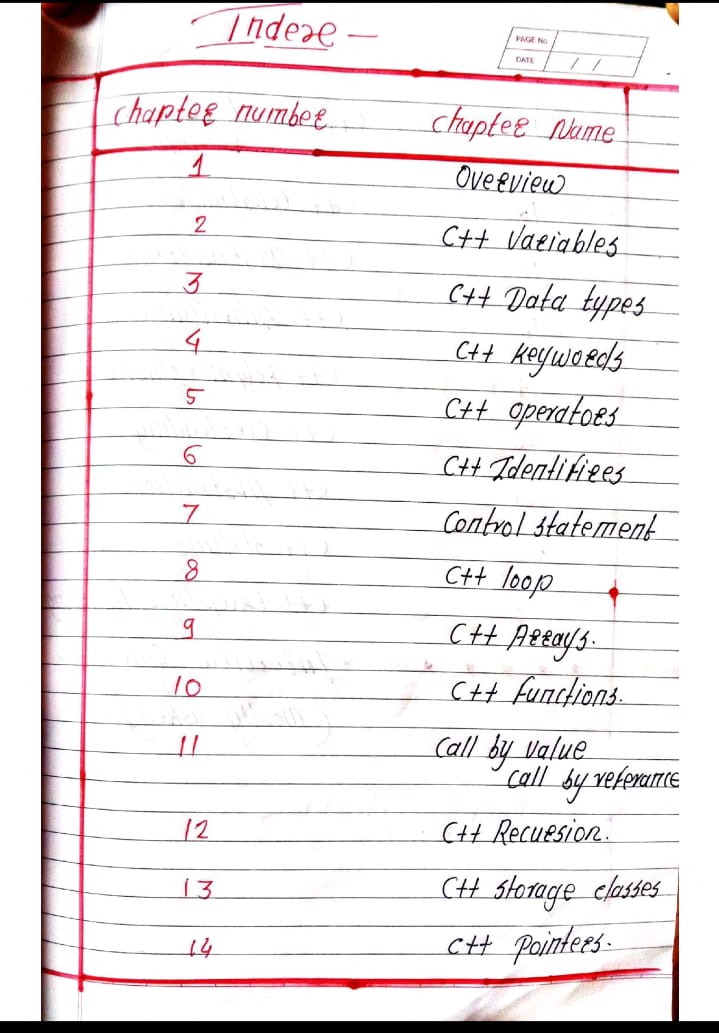 Index -
PAGE NO
DATE / /
chapter number chapter Name
1 Overview
2 C++ Variables
3 C++ Data types
4 C++ Keywords
5 C++ operators
6 C++ Identifiers
7 Control statement
8 C++ loop
9 C++ Arrays.
10 C++ functions.
11 Call by value
call by referance
12 C++ Recursion.
13 C++ storage classes
14 C++ pointers.